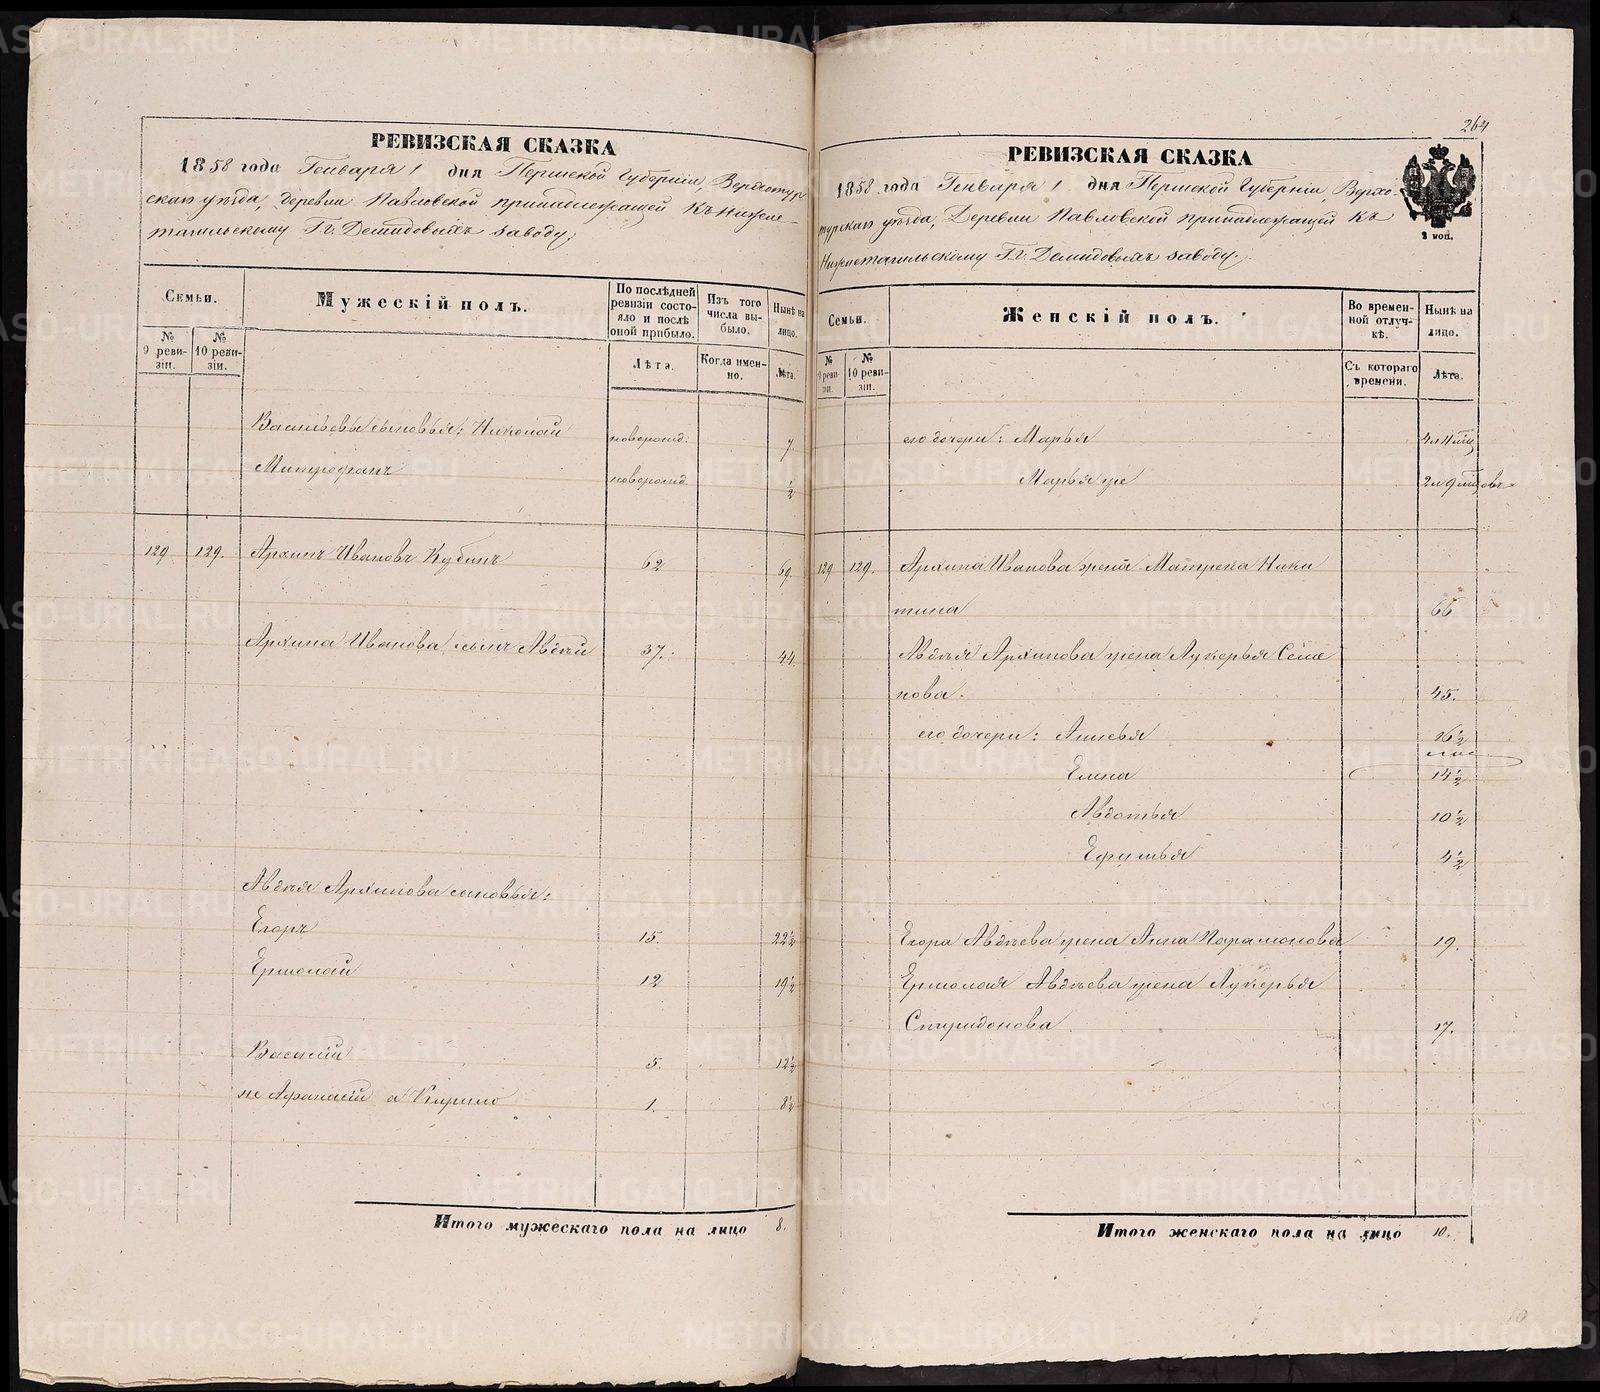 264
РЕВИЗСКАЯ СКАЗКА
1858 года Генваря 1 дня Пермской Губерніи, Верхотур
скаго уѣзда, Деревни Павловской принадлежащей къ Нижне-
тагильскому Гг. Демидовыхъ заводу;
Семьи.
Мужескій полъ.
По послѣдней ревизіи состояло и послѣ оной прибыло.
Изъ того числа выбыло.
Нынѣ на лицо.
№ 9 ревизіи.
№ 10 ревизіи.
Лѣта.
Когда именно.
Лѣта.
Васильевы сыновья: Николай новорожд. 7.
Митрофанъ новорожд. ½
129 129. Архипъ Ивановъ Кубинъ 62 69.
Архипа Иванова сынъ Авдѣй 37. 44
Авдѣя Архипова сыновья:
Егоръ 15. 22½
Ермолай 12 19½
Василій 5. 12½
не Афанасій а Кирило 1. 8½
Итого мужескаго пола на лицо 8.
РЕВИЗСКАЯ СКАЗКА
1858 года Генваря 1 дня Пермской Губерніи, Верхо-
турскаго уѣзда, Деревни Павловской принадлежащей къ
Нижнетагильскому Гг. Демидовыхъ заводу.
2 коп.
Семьи.
Женскій полъ.
Во временной отлучкѣ.
Нынѣ на лицо.
№ 9 ревизіи.
№ 10 ревизіи.
Съ котораго времени.
Лѣта.
его дочери: Марья
Марья же
129 129. Архипа Иванова жена Матрена Ники
тина 66
Авдѣя Архипова жена Лукерья Семе
нова. 45.
его дочери: Анисья 16½
Елена 14½
Авдотья 10½
Ефимья 4½
Егора Авдѣева жена Анна Парамонова 19.
Ермолая Авдѣева жена Лукерья
Спиридонова 17.
Итого женскаго пола на лицо 10.